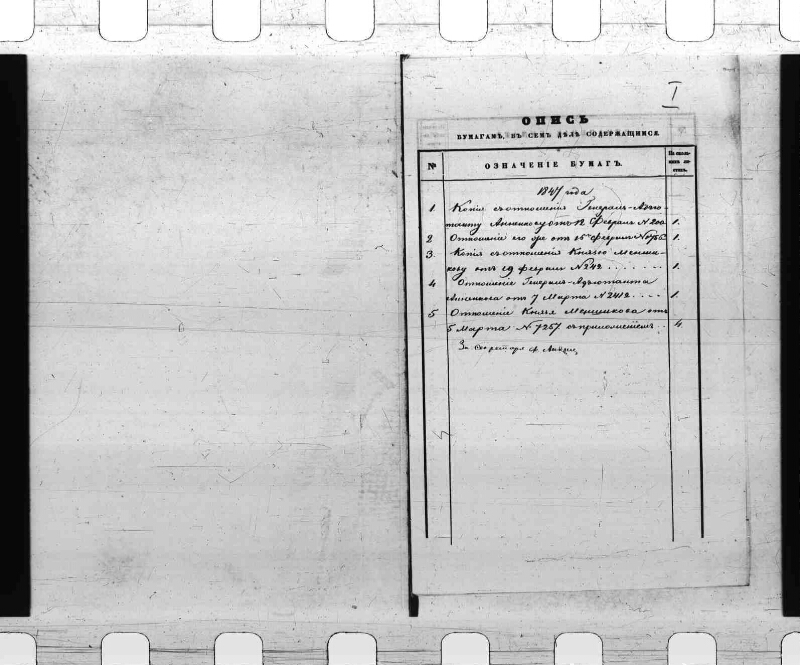 I
ОПИСЬ
БУМАГАМЪ, ВЪ СЕМЪ ДѢЛѢ СОДЕРЖАЩИМСЯ.
№ ОЗНАЧЕНІЕ БУМАГЪ. На сколькихъ листахъ.
1847 года
1. Копія съ отношенія Генералъ-Адъютанту
Анненкову отъ 12 Февраля № 200 1.
2 Отношеніе его отъ Февраля 1.
3. Копія съ отношенія Князю Менши-
кову отъ 19 Февраля № 242 . . . . . . 1.
4 Отношеніе Генералъ-Адъютанта
Анненкова отъ 7 Марта № 2412 . . . . 1.
5 Отношеніе Князя Меншикова отъ
5 Марта № 7257 съ приложеніемъ . . 4.
За Секретаря